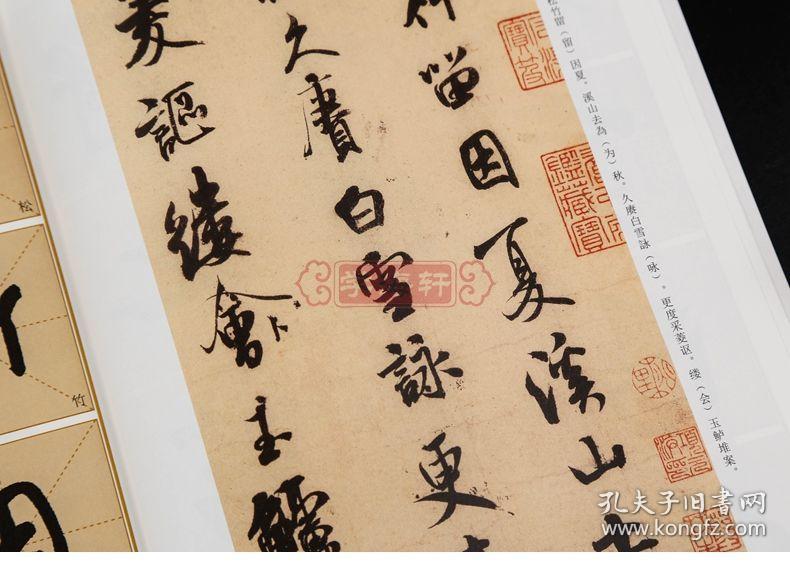 松竹留（留）因夏。溪山去為（为）秋。久赓白雪詠（咏）。更度采菱讴。缕（会）玉鲈堆案。
竹留因夏溪山
久賡白雪詠更
菱謳縷會卜玉鱸
松
竹
竹
因
孔夫子旧书网
www.kongfz.com